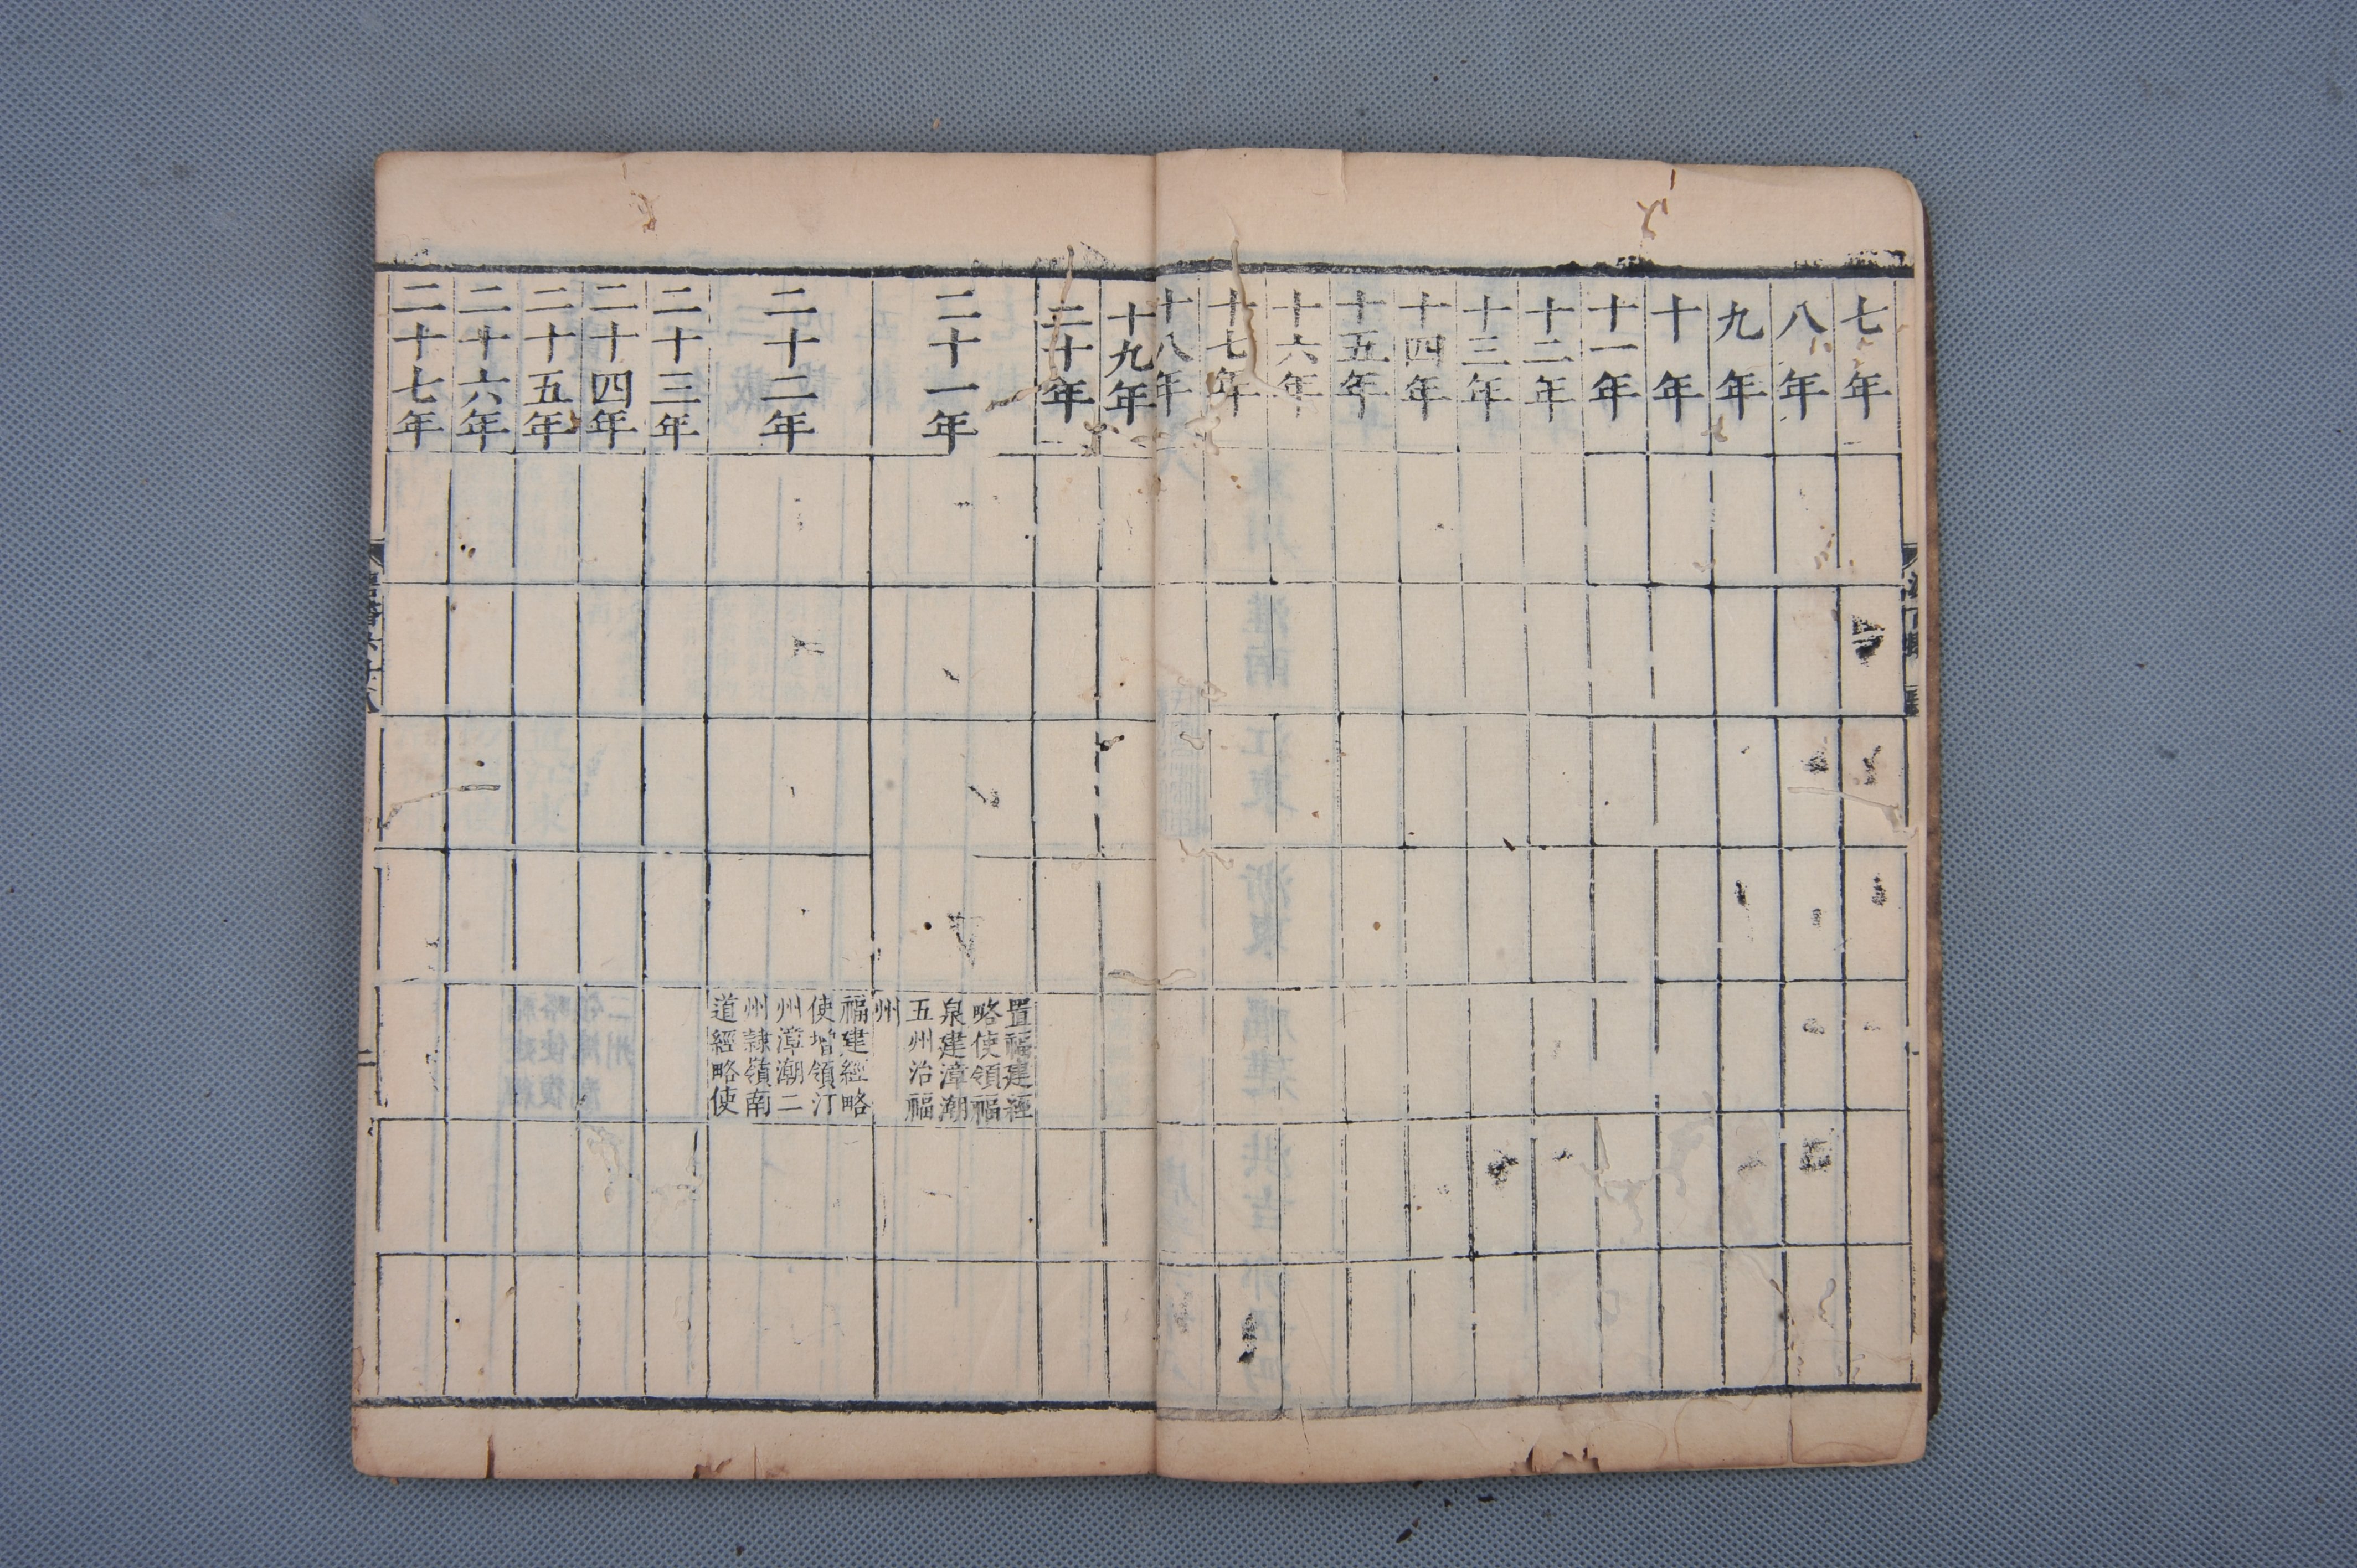 七年
八年
九年
十年
十一年
十二年
十三年
十四年
十五年
十六年
十七年
十八年
十九年
二十年
二十一年
置福建經
略使領福
泉建漳潮
五州治福
州
二十二年
福建經略
使增領汀
州漳潮二
州隸嶺南
道經略使
二十三年
二十四年
二十五年
二十六年
二十七年